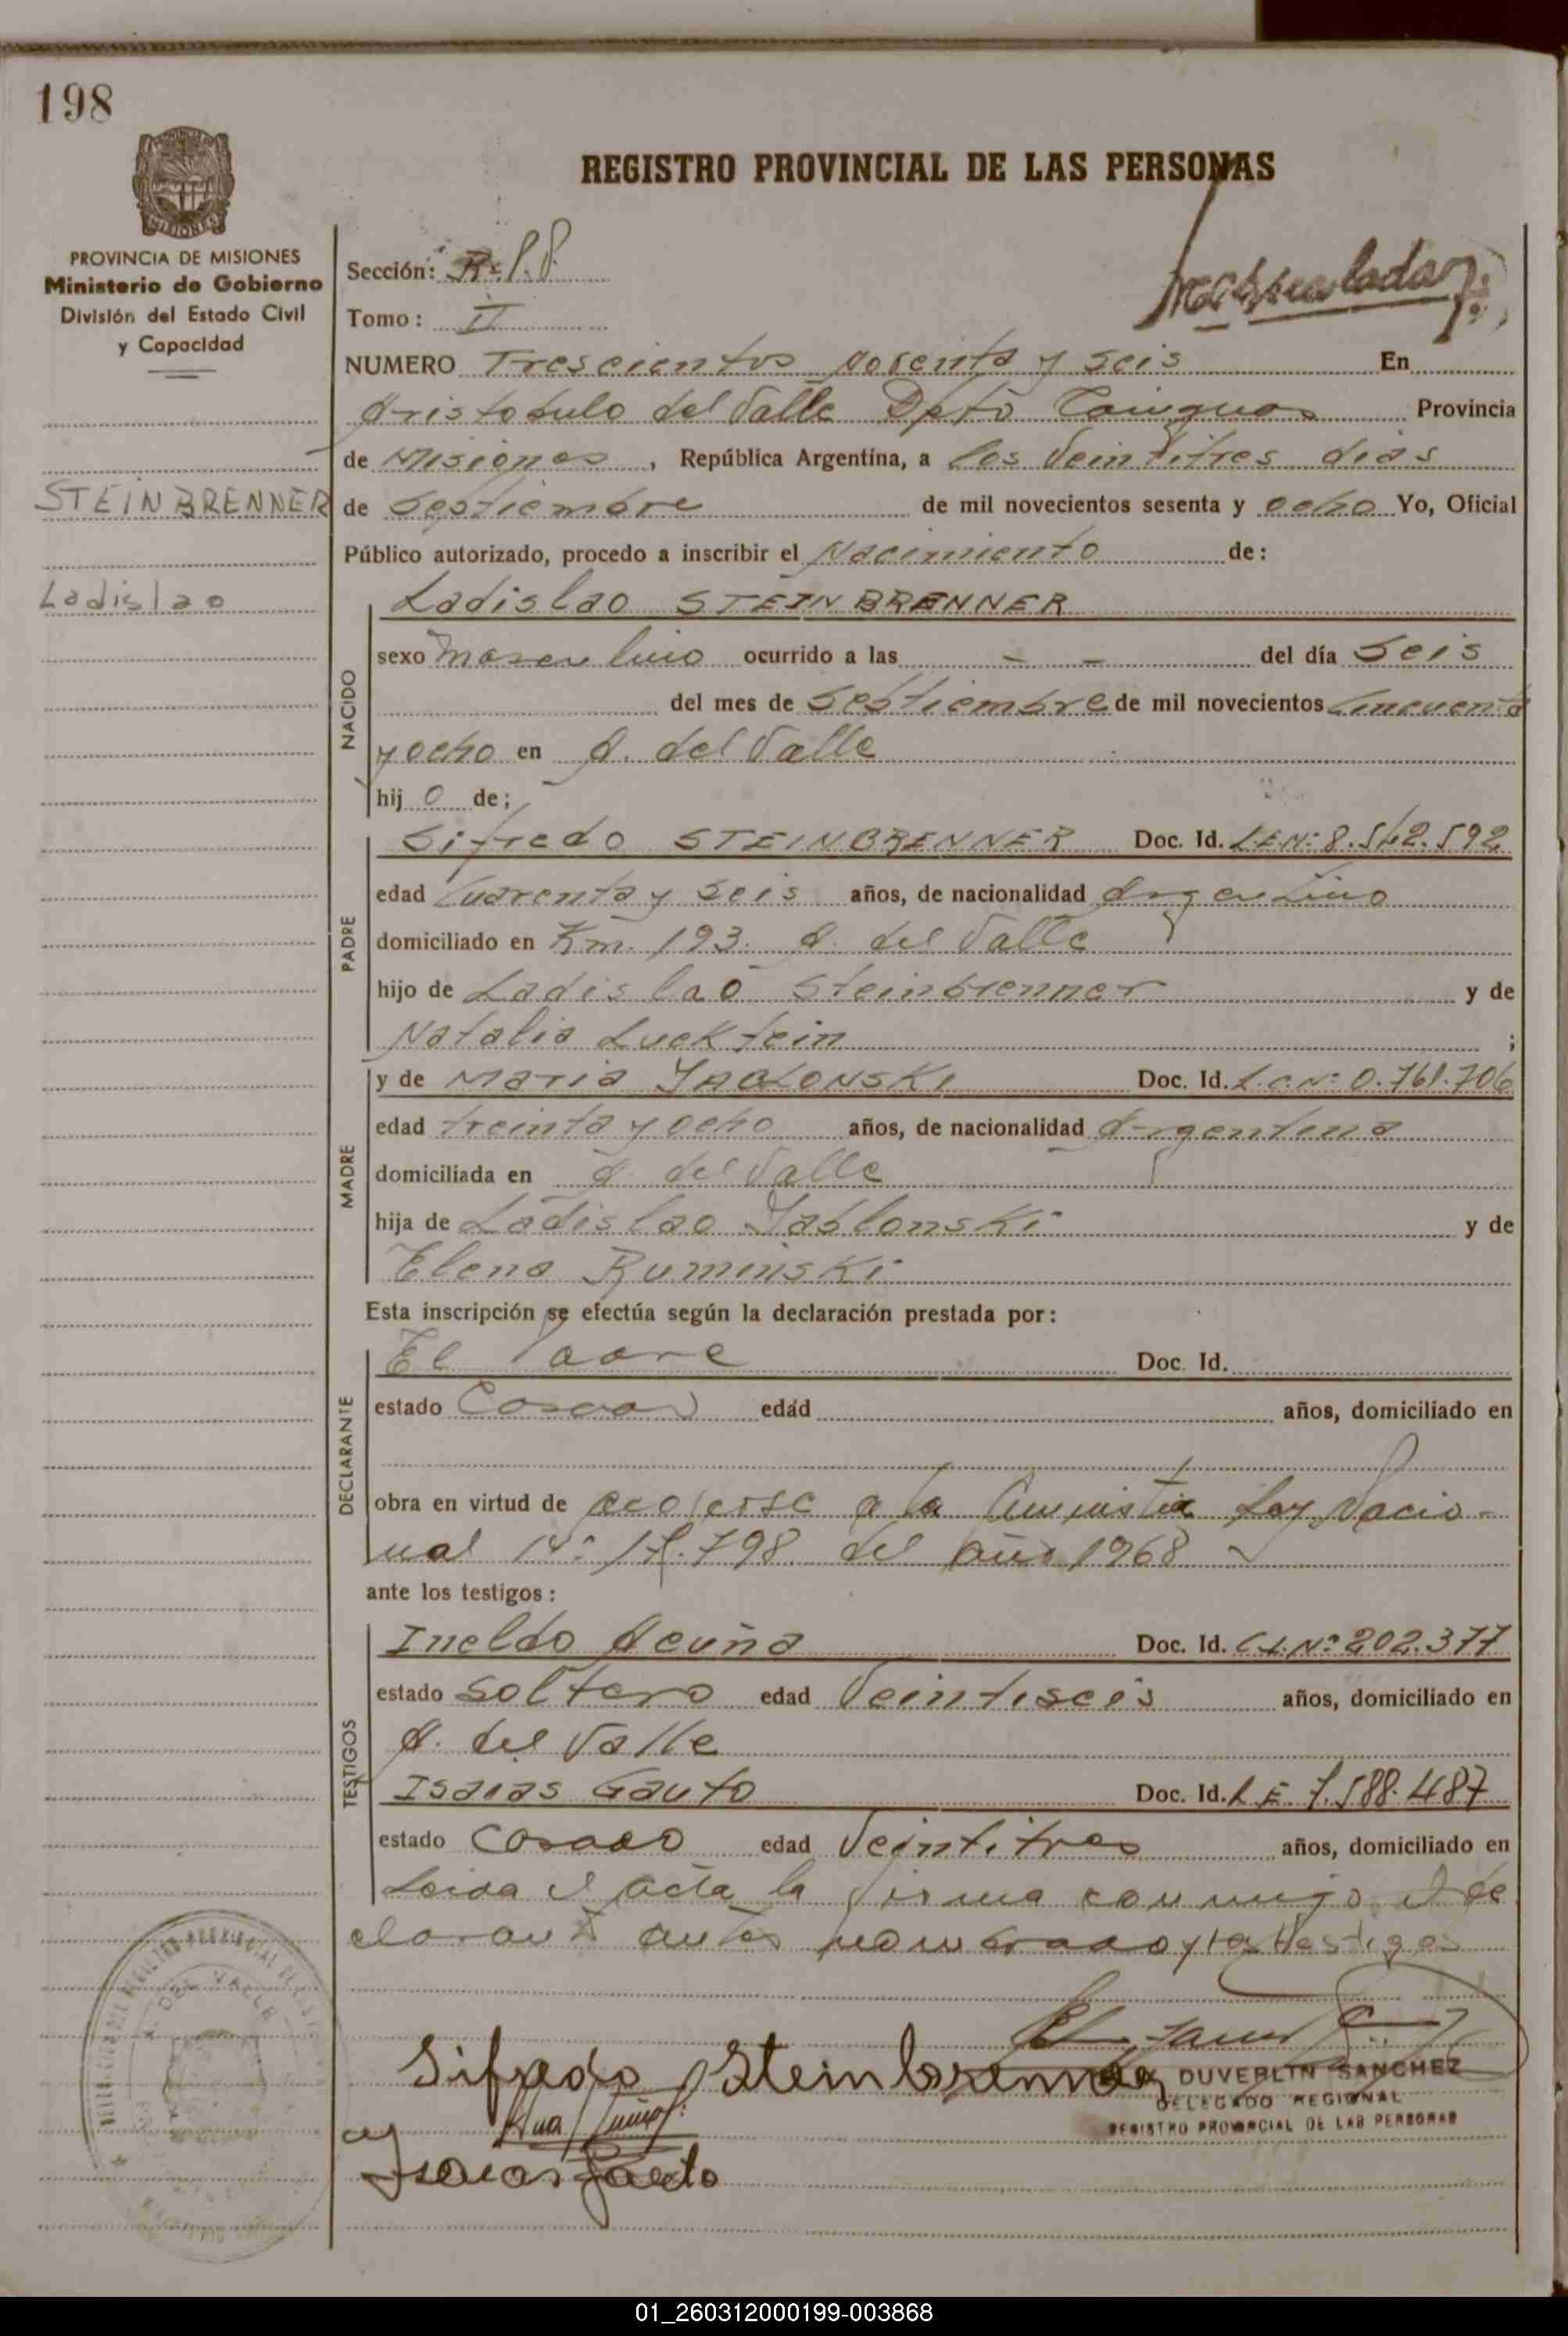 198
REGISTRO PROVINCIAL DE LAS PERSONAS
PROVINCIA DE MISIONES
Ministerio de Gobierno
División del Estado Civil
y Capacidad
STEINBRENNER
Ladislao
Sección:
Tomo: II
NUMERO Trescientos noventa y seis En
Aristobulo del Valle Dpto Cainguas Provincia
de Misiones, República Argentina, a los Veintitres dias
de Septiembre de mil novecientos sesenta y ocho Yo, Oficial
Público autorizado, procedo a inscribir el Nacimiento de:
NACIDO
Ladislao STEINBRENNER
sexo Masculino ocurrido a las - - del día Seis
del mes de Septiembre de mil novecientos Cincuenta
y ocho en A. del Valle
hijo de;
PADRE
Sifredo STEINBRENNER Doc. Id. L.E.Nº 8.542.592
edad Cuarenta y seis años, de nacionalidad Argentino
domiciliado en Km. 193. A. del Valle
hijo de Ladislao Steinbrenner y de
Natalia Lucktein ;
MADRE
y de Maria JABLONSKI Doc. Id. L.C.Nº 0.761.706
edad treinta y ocho años, de nacionalidad Argentina
domiciliada en A. del Valle
hija de Ladislao Jablonski y de
Elena Ruminski
Esta inscripción se efectúa según la declaración prestada por:
DECLARANTE
El Padre Doc. Id.
estado Casado edad años, domiciliado en
obra en virtud de acojerse a la Amnistia Ley Nacio-
nal Nº 17.798 del año 1968
ante los testigos:
TESTIGOS
Ineldo Acuña Doc. Id. C.I.Nº 202.377
estado Soltero edad Veintiseis años, domiciliado en
A. del Valle
Isaias Gauto Doc. Id. L.E. 7.588.487
estado Casado edad Veintitres años, domiciliado en
Leida el acta la firma conmigo el de
clarante antes nombrado y los testigos
Sifredo Steinbrenner
DUVERLIN SANCHEZ
DELEGADO REGIONAL
REGISTRO PROVINCIAL DE LAS PERSONAS
Isaias Gauto
A. DEL VALLE
01_260312000199-003868